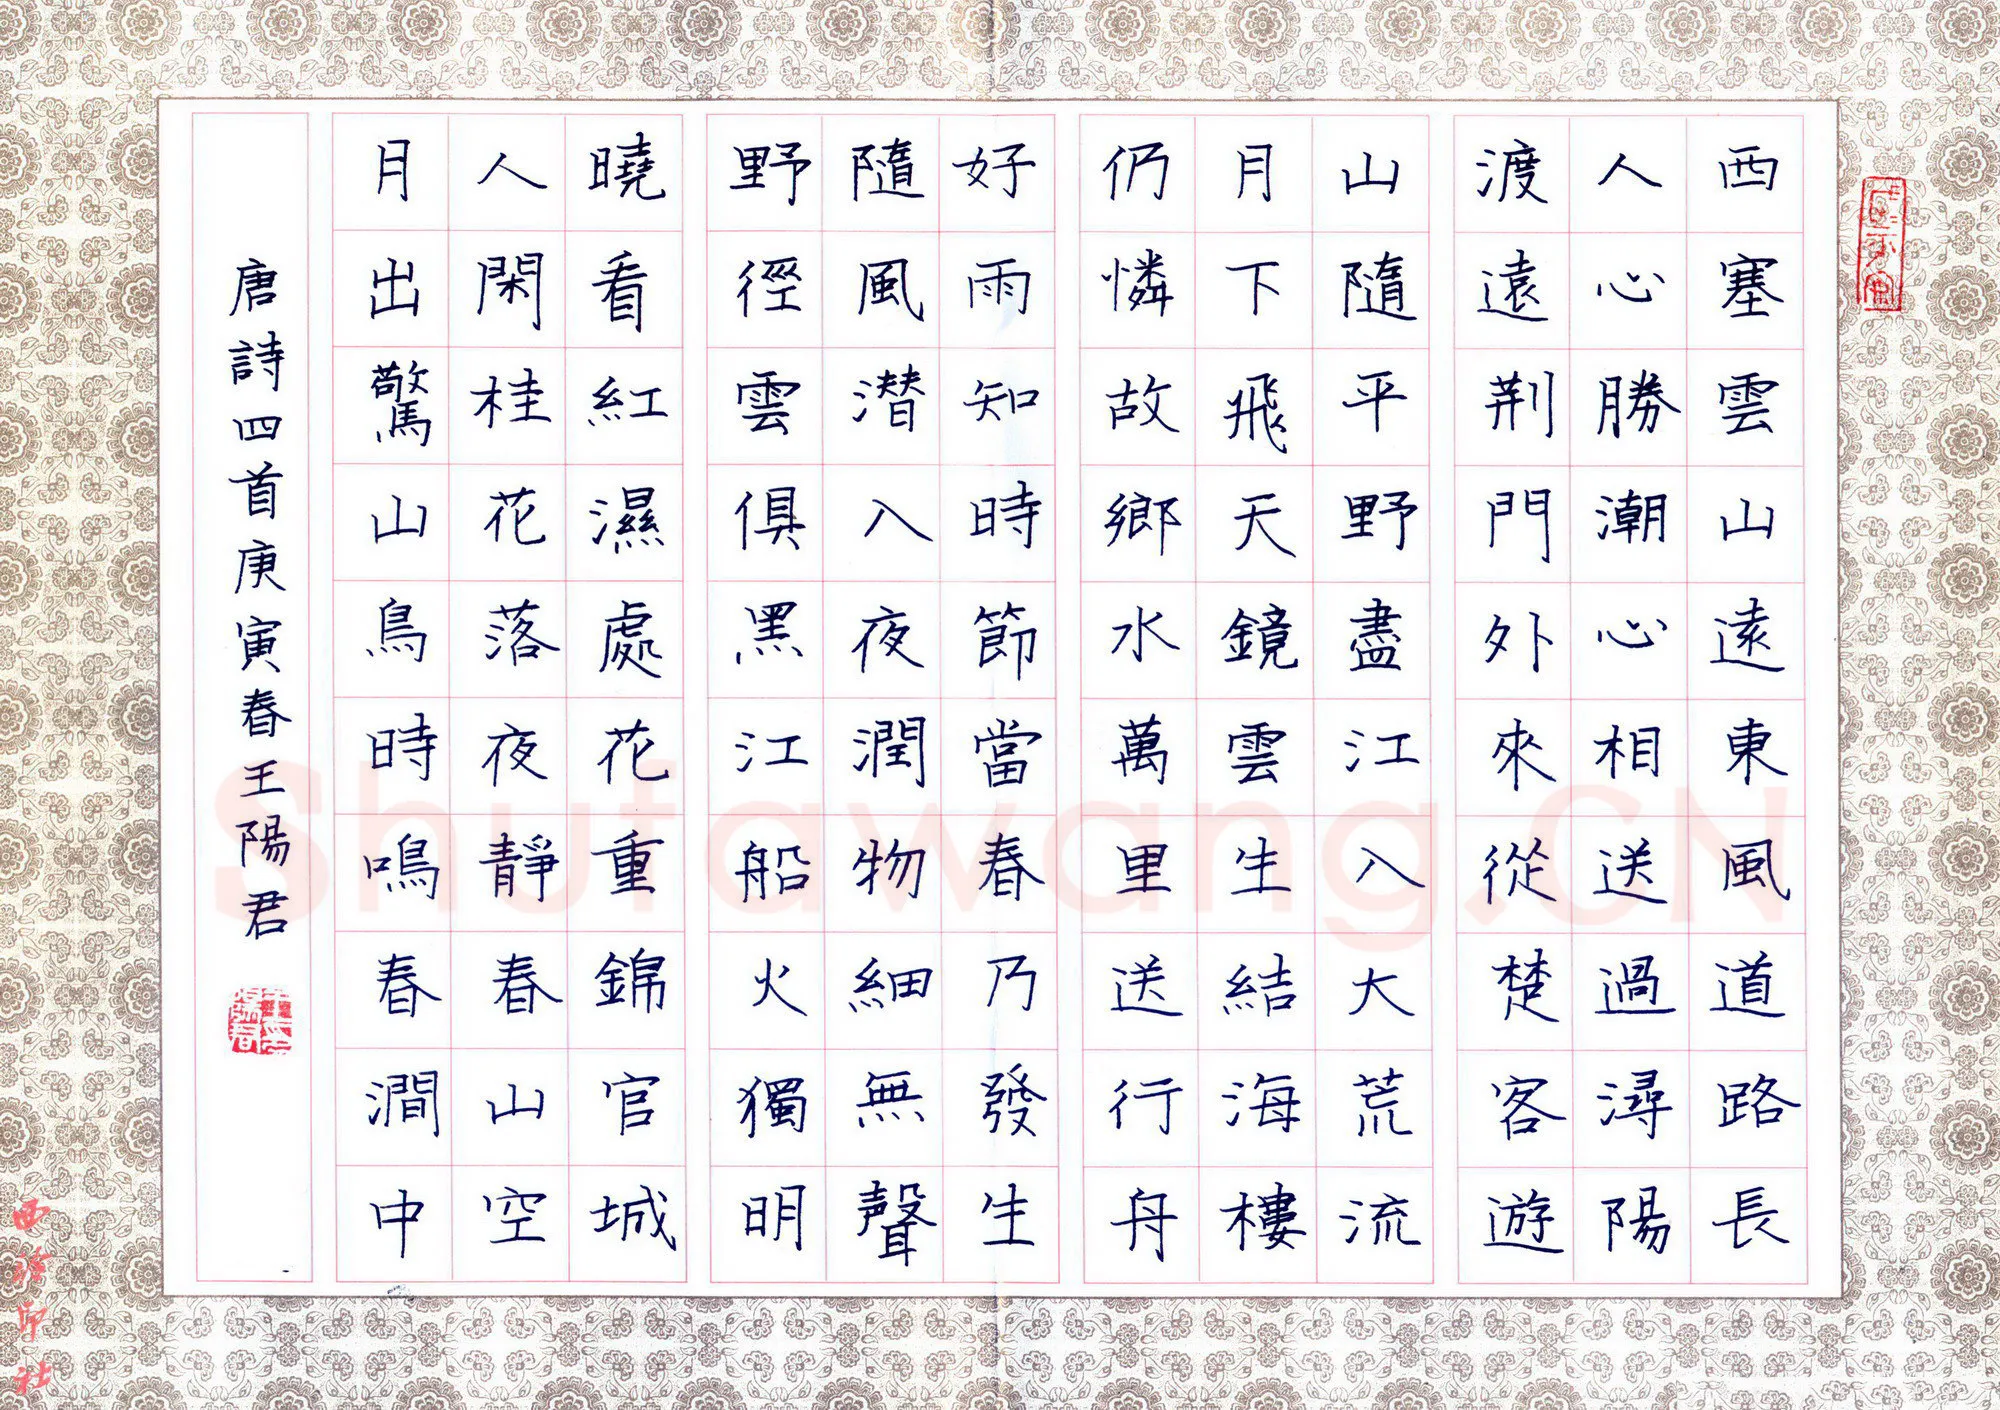 西塞雲山遠東風道路長
人心勝潮心相送過潯陽
渡遠荆門外來從楚客遊
山隨平野盡江入大荒流
月下飛天鏡雲生結海樓
仍憐故鄉水萬里送行舟
好雨知時節當春乃發生
隨風潜入夜潤物細無聲
野徑雲俱黑江船火獨明
曉看紅濕處花重錦官城
人閑桂花落夜靜春山空
月出驚山鳥時鳴春澗中
唐詩四首庚寅春王陽君
西泠印社
Shufawang.CN